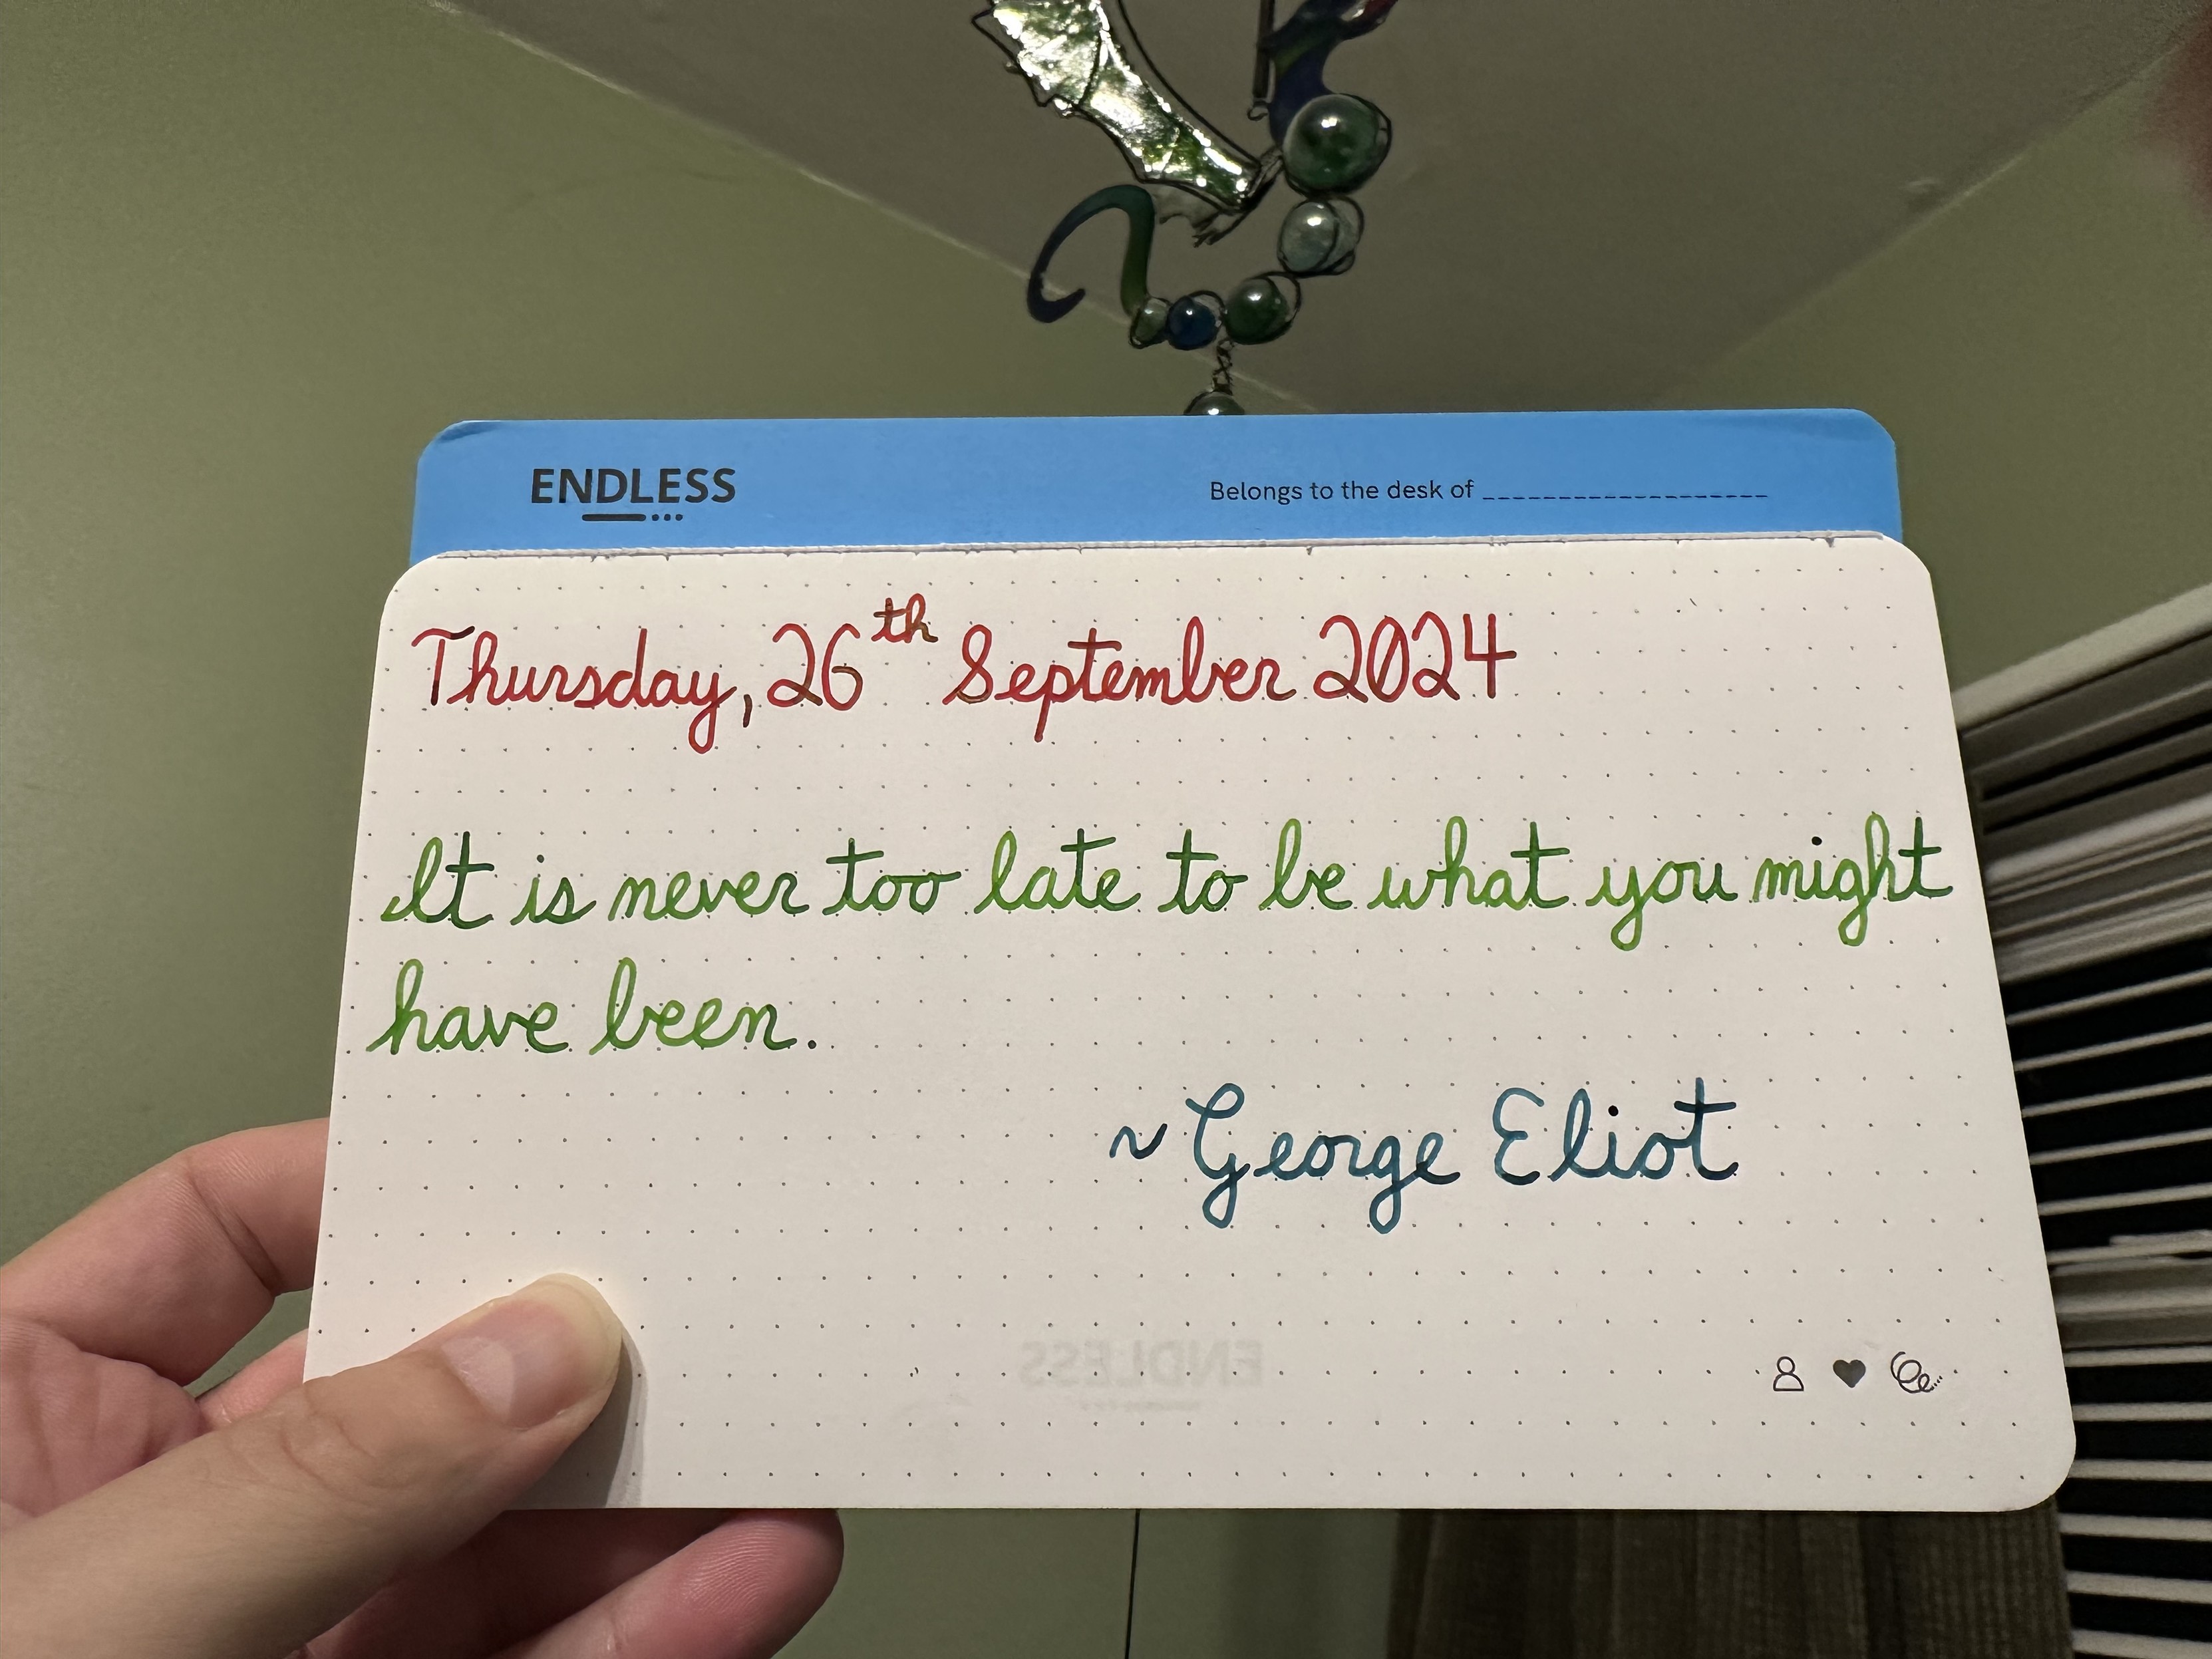 ENDLESS
Belongs to the desk of ___________________
Thursday, 26th September 2024
It is never too late to be what you might
have been.
~ George Eliot
ENDLESS